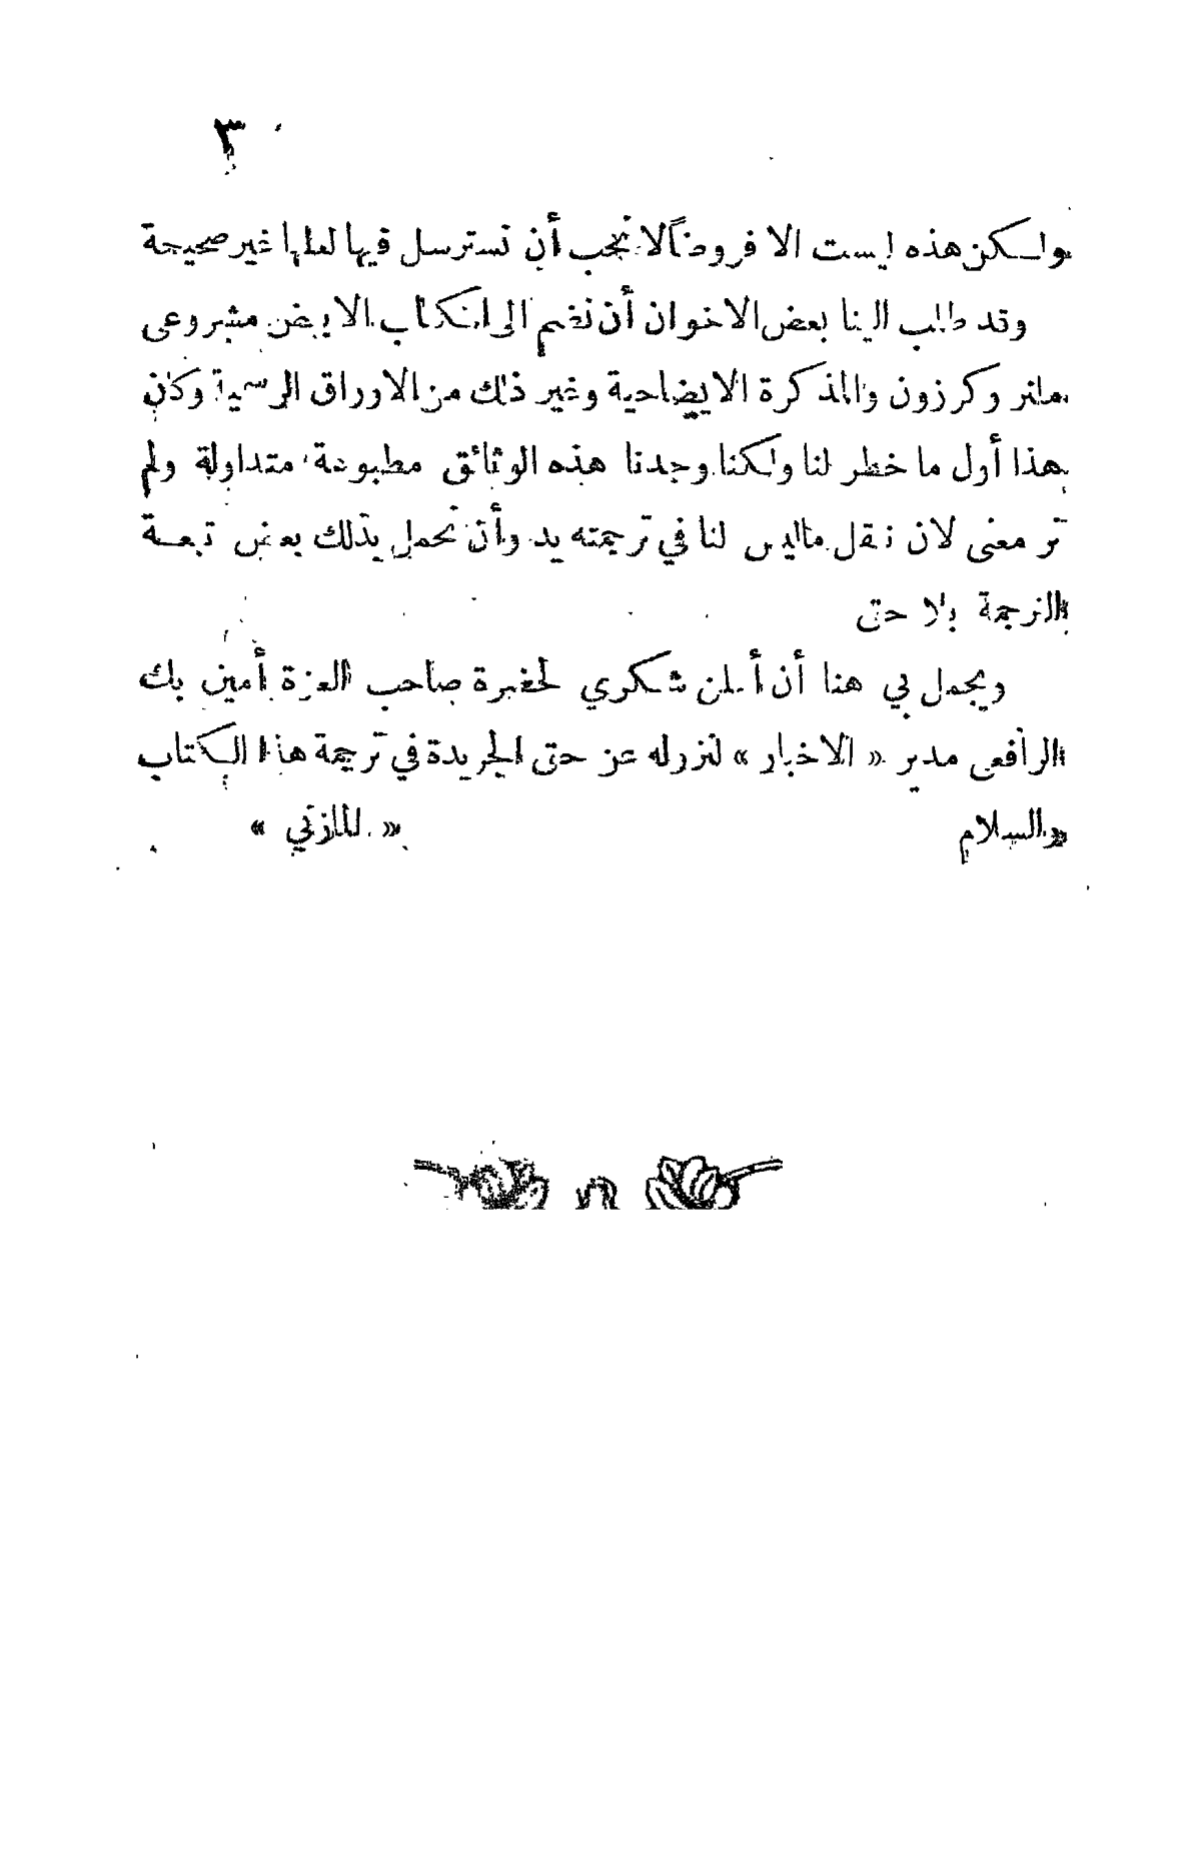 ٣
ولكن هذه ليست الا فروضاً لا نحب أن نسترسل فيها لعلها غير صحيحة
وقد طلب الينا بعض الاخوان أن نضم الى الكتاب الابيض مشروعى
ملنر وكرزون والمذكرة الايضاحية وغير ذلك من الاوراق الرسمية وكان
هذا أول ما خطر لنا ولكنا وجدنا هذه الوثائق مطبوعة متداولة ولم
نر معنى لان ننقل ماليس لنا في ترجمته يد وأن نحمل بذلك بعض تبعة
الترجمة بلا حق
ويجمل بي هنا أن أعلن شكري لحضرة صاحب العزة أمين بك
الرافعى مدير « الاخبار » لنزوله عن حق الجريدة في ترجمة هذا الكتاب
والسلام « المازني »